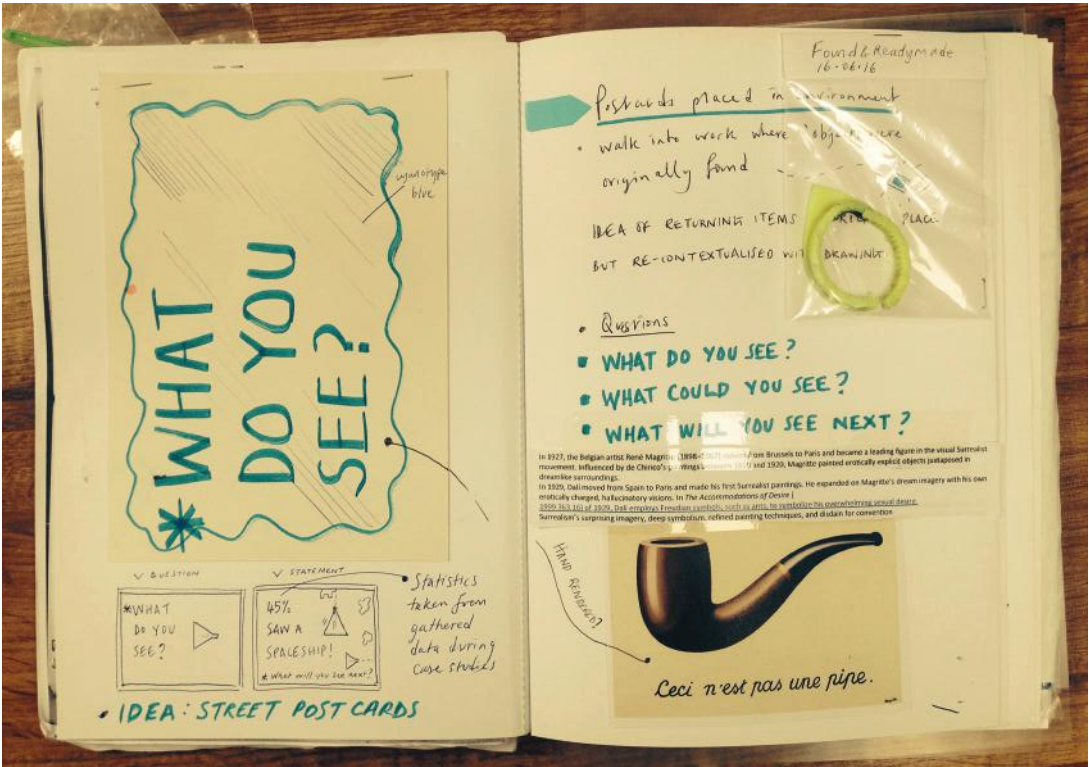 *WHAT
DO YOU
SEE?
cyanotype
blue
✓ QUESTION
*WHAT
DO YOU
SEE?
✓ STATEMENT
45%
SAW A
SPACESHIP!
*What will you see next?
• Statistics
taken from
gathered
data during
case studies
• IDEA: STREET POSTCARDS
Found & Readymade
16·06·16
Postcards placed in environment
• walk into work where objects were
originally found
IDEA OF RETURNING ITEMS PLACE
BUT RE-CONTEXTUALISED WITH DRAWING
• Questions
▪ WHAT DO YOU SEE?
▪ WHAT COULD YOU SEE?
▪ WHAT WILL YOU SEE NEXT?
In 1927, the Belgian artist René Magritte (1898– from Brussels to Paris and became a leading figure in the visual Surrealist
movement. Influenced by de Chirico's paintings and 1920, Magritte painted erotically explicit objects juxtaposed in
dreamlike surroundings.
In 1929, Dalí moved from Spain to Paris and made his first Surrealist paintings. He expanded on Magritte's dream imagery with his own
erotically charged, hallucinatory visions. In The Accommodations of Desire (
1999.363.16) of 1929, Dalí employs Freudian symbols, such as ants, to symbolize his overwhelming sexual desire.
Surrealism's surprising imagery, deep symbolism, refined painting techniques, and disdain for convention
HAND RENDERED?
Ceci n'est pas une pipe.